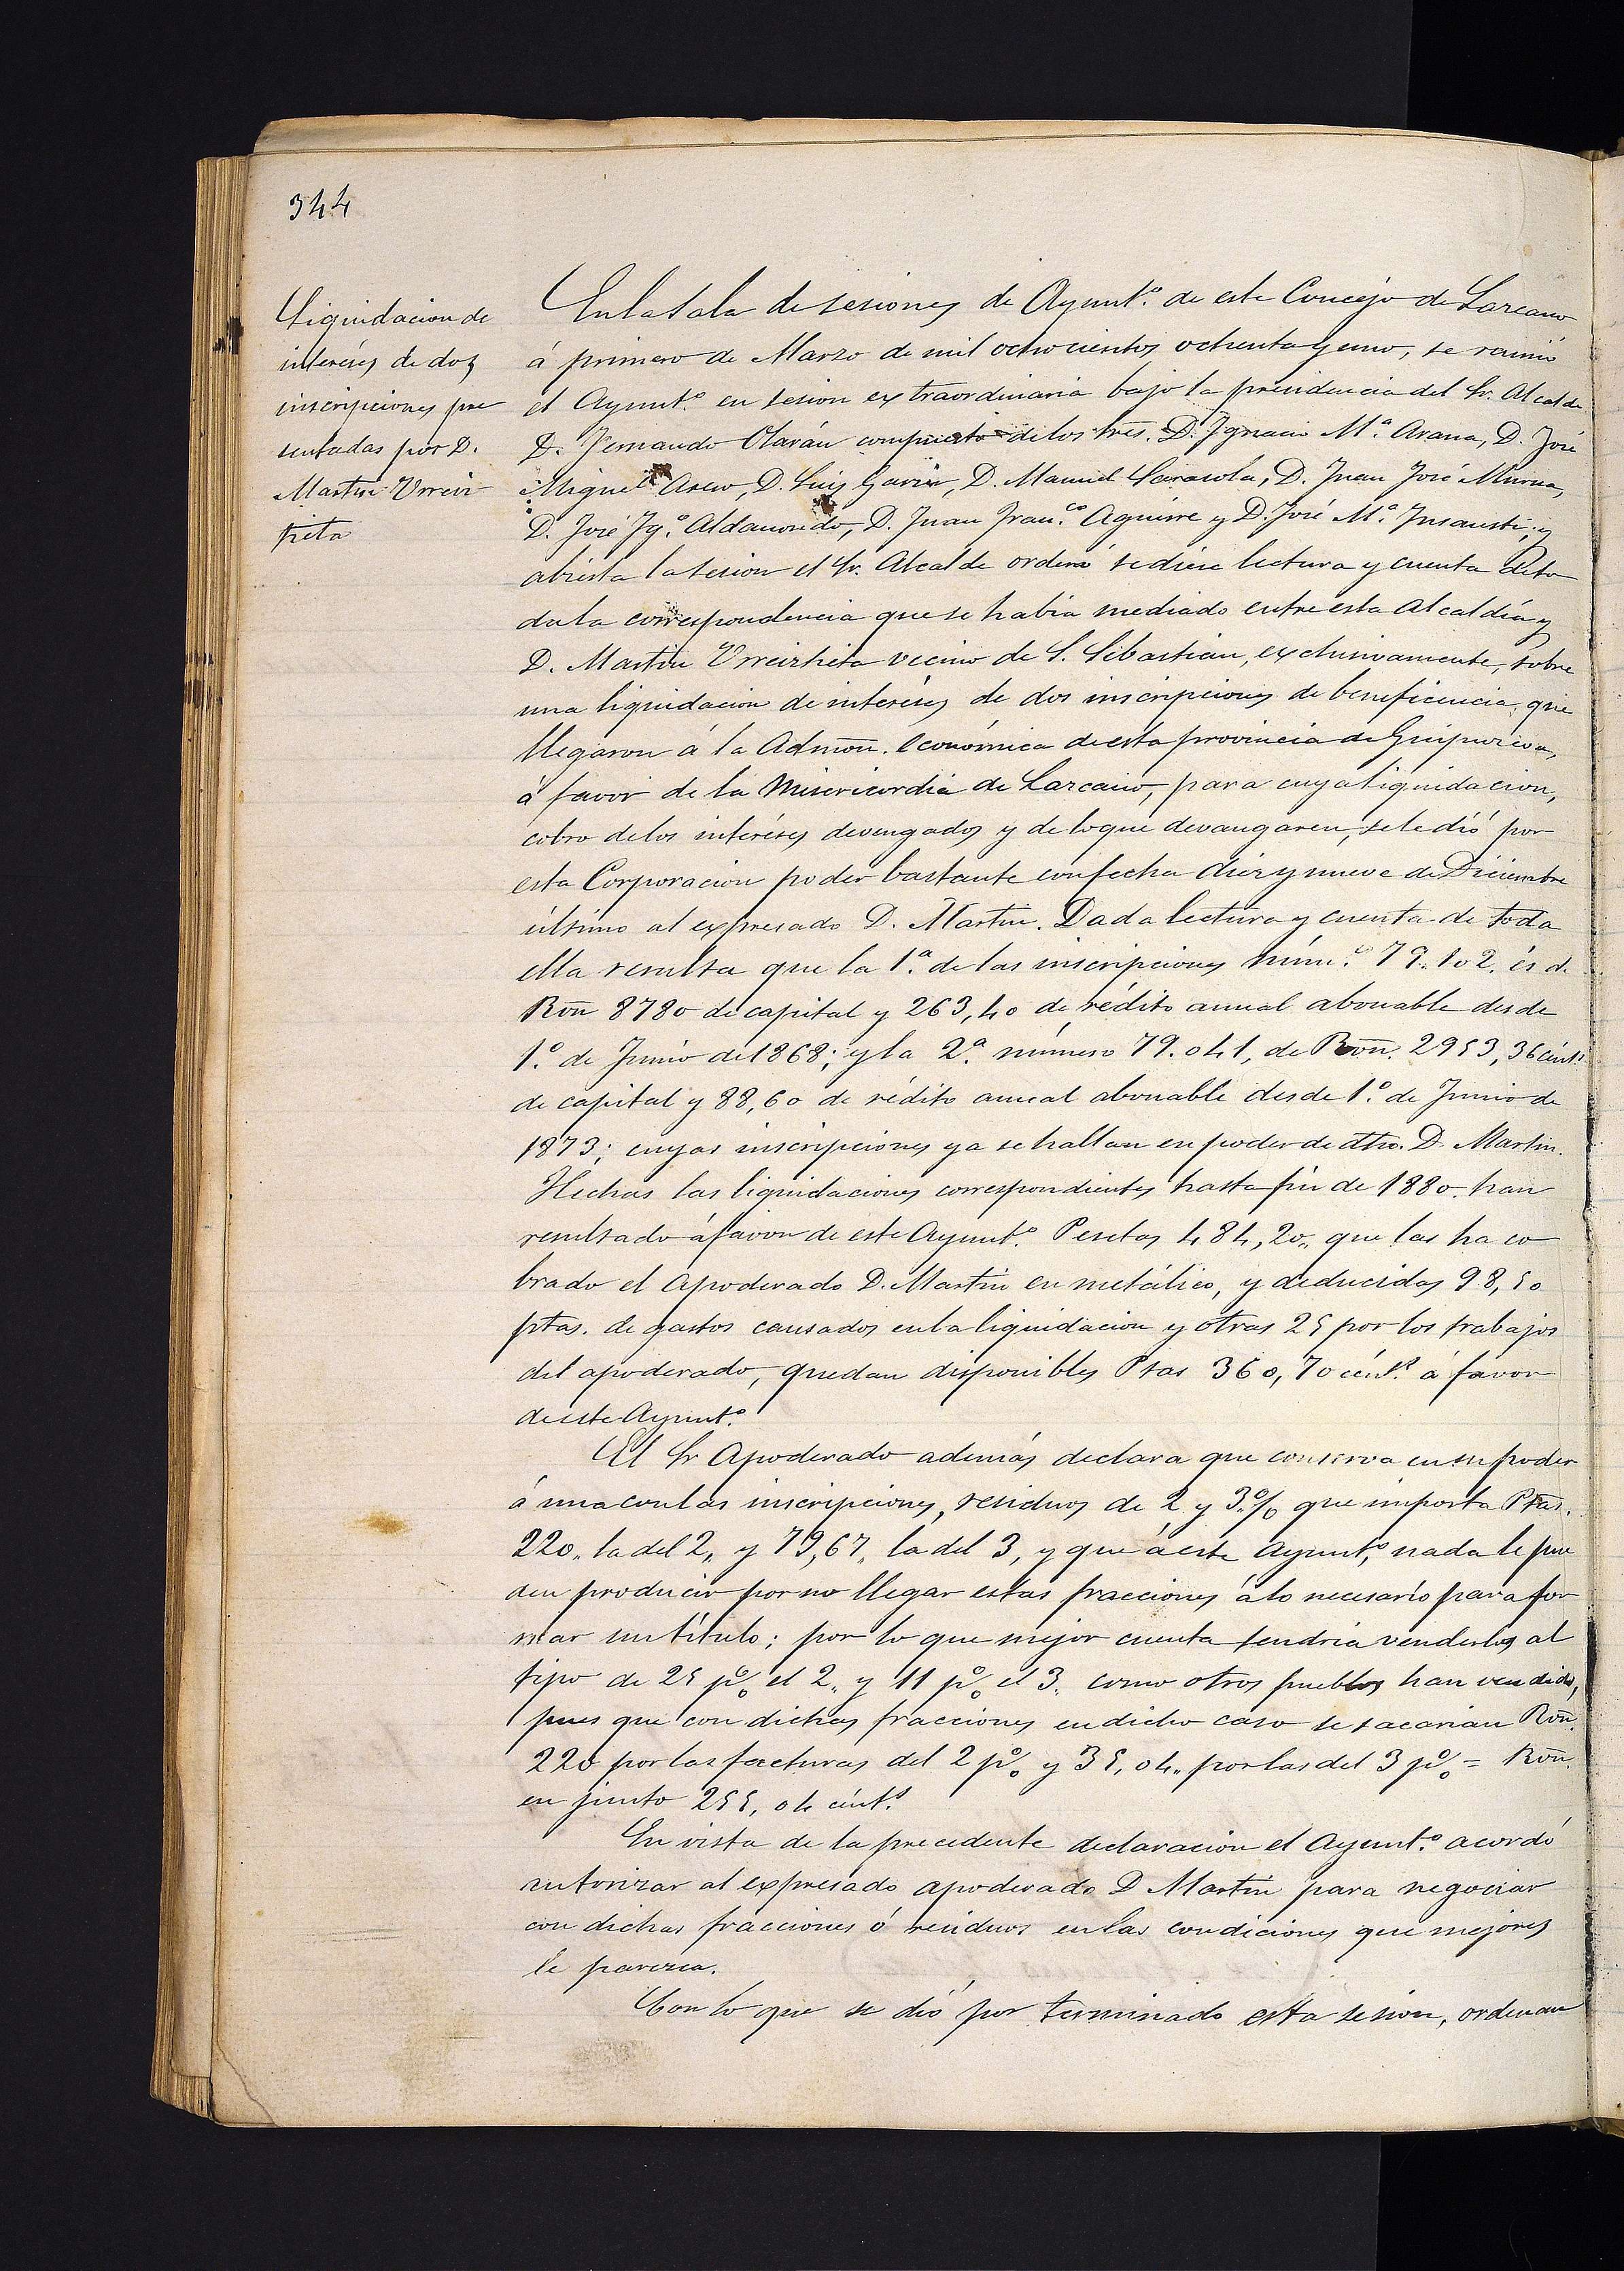 344
Liquidacion de
interéses de dos
inscripciones pre
sentadas por D.
Martin Urreiz
tieta
En la Sala de sesiones de Ayunt.º de este Concejo de Lazcano
á primero de Marzo de mil ochocientos ochenta y uno, se reunió
el Ayunt.º en sesion extraordinaria bajo la presidencia del Sr. Alcalde
D. Fernando Olarán compuesto de los Sres. D. Ignacio M.ª Arana, D. José
Miguel D. Luis Gavin, D. Manuel Sarasola, D. Juan José Murua,
D. José Ig.º Aldasoro, D. Juan Fran.co Aguirre y D. José M.ª Insausti; y
abierta la sesion el Sr. Alcalde ordenó se diese lectura y cuenta de to
da la correspondencia que se habia mediado entre esta Alcaldía y
D. Martin Urreiztieta vecino de S. Sebastian, exclusivamente, sobre
una liquidacion de interéses de dos inscripciones de beneficencia que
llegaron á la Admōn. económica de esta provincia de Guipuzcoa,
á favor de la Misericordia de Lazcano, para cuya liquidacion,
cobro de los interéses devengados y de loque devangaren, se le dió por
esta Corporacion poder bastante con fecha diez y nueve de Diciembre
último al expresado D. Martin. Dada lectura y cuenta de toda
ella resulta que la 1.ª de las inscripciones núm.º 79.102. és de
Rōn 8780 de capital y 263,40 de rédito anual abonable desde
1.º de Junio del 1868; y la 2.ª número 79.041, de Rōn. 2953, 36 cént.s
de capital y 88,60 de rédito anual abonable desde 1.º de Junio de
1873; cuyas inscripciones ya se hallan en poder de dho. D. Martin.
Hechas las liquidaciones correspondientes hasta fin de 1880. han
resultado á favor de este Ayunt.º Pesetas 484,20,, que las ha co
brado el apoderado D. Martin en metálico, y deducidas 98,50
ptas. de gastos causados en la liquidacion y otras 25 por los trabajos
del apoderado, quedan disponibles Ptas 360,70 cént.s á favor
de este Ayunt.º
El Sr Apoderado además declara que conserva en su poder
á una con las inscripciones, residuos de 2 y 3 % que importa Ptas.
220,, la del 2,, y 79,67,, la del 3, y que á este Ayunt.º nada le pue
den producir por no llegar estas fracciones á lo necesario para for
mar un título; por lo que mejor cuenta tendria venderlos al
tipo de 25 p% el 2,, y 11 p% el 3,, como otros pueblos han vendido,
pues que con dichas fracciones en dicho caso se sacarian Rōn.
220 por las facturas del 2 p% y 35,04,, por las del 3 p% = Rōn.
en junto 255,04 cént.s
En vista de la precedente declaracion el Ayunt.º acordó
autorizar al expresado apoderado D Martin para negociar
con dichas fracciones ó residuos en las condiciones que mejores
le parezca.
Con lo que se dió por terminado esta sesion, ordenan